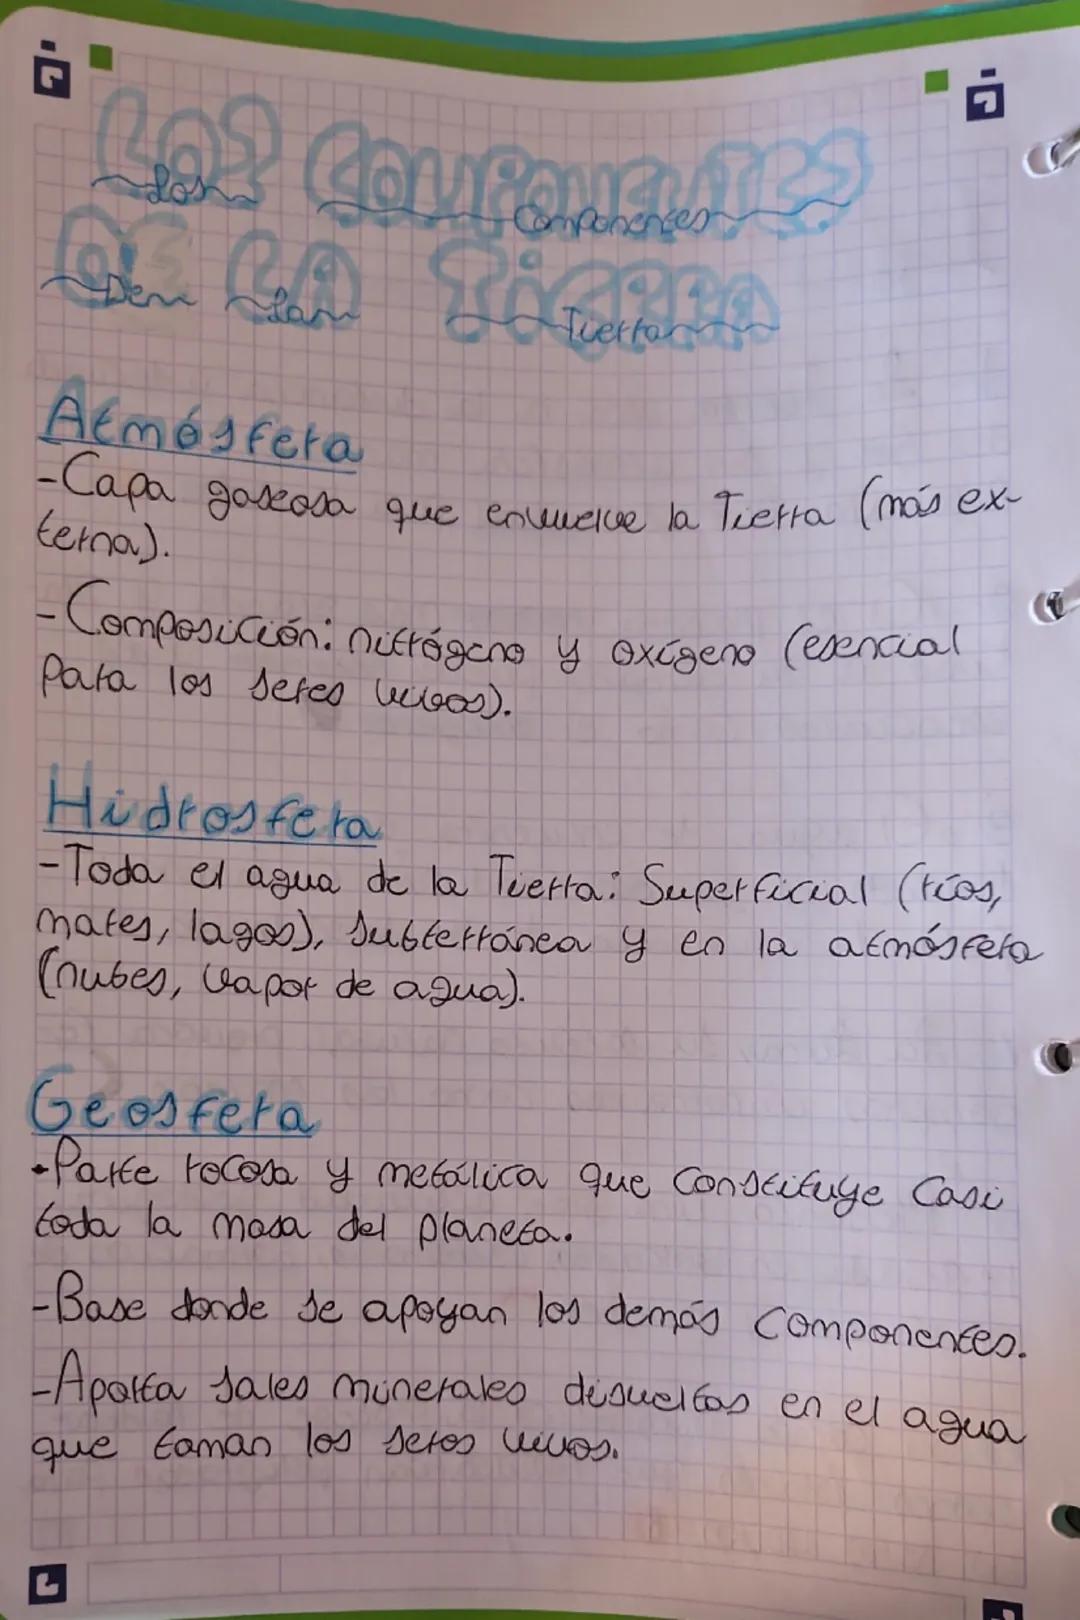 LOS COMPONENTES
Los Componentes
DE LA TiERRA
De la Tierra
Atmósfera
-Capa gaseosa que envuelve la Tierra (más ex-
terna).
-Composición: nitrógeno y oxígeno (esencial
para los seres vivos).
Hidrosfera
-Toda el agua de la Tierra: Superficial (ríos,
mares, lagos), subterránea y en la atmósfera
(nubes, vapor de agua).
Geosfera
-Parte rocosa y metálica que constituye casi
toda la masa del planeta.
-Base donde se apoyan los demás componentes.
-Aporta sales minerales disueltas en el agua
que toman los seres vivos.